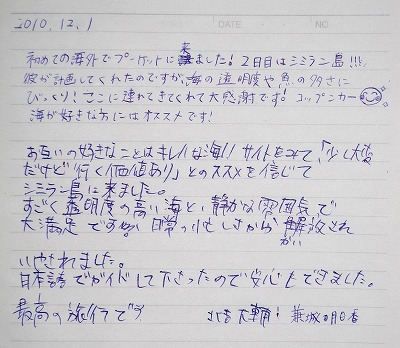 2010.12.1
DATE
NO
初めての海外でプーケットに来ました!2日目はシミラン島!!!
彼が計画してくれたのですが、海の透明度や魚の多さに
びっくり!ここに連れてきてくれて大感謝です。コップンカー
海が好きな方にはオススメです!
お互いの好きなことはキレイな海!!サイトをみて、「少し大変
だけど行く価値あり」とのススメを信じて
シミラン島に来ました。
すごく透明度の高い海と、静かな雰囲気で
大満足です。日常の忙しさから解放され
がい
いやされました。
日本語でガイドして下さったので安心もできました。
最高の旅行です
大輔! 兼城明日香